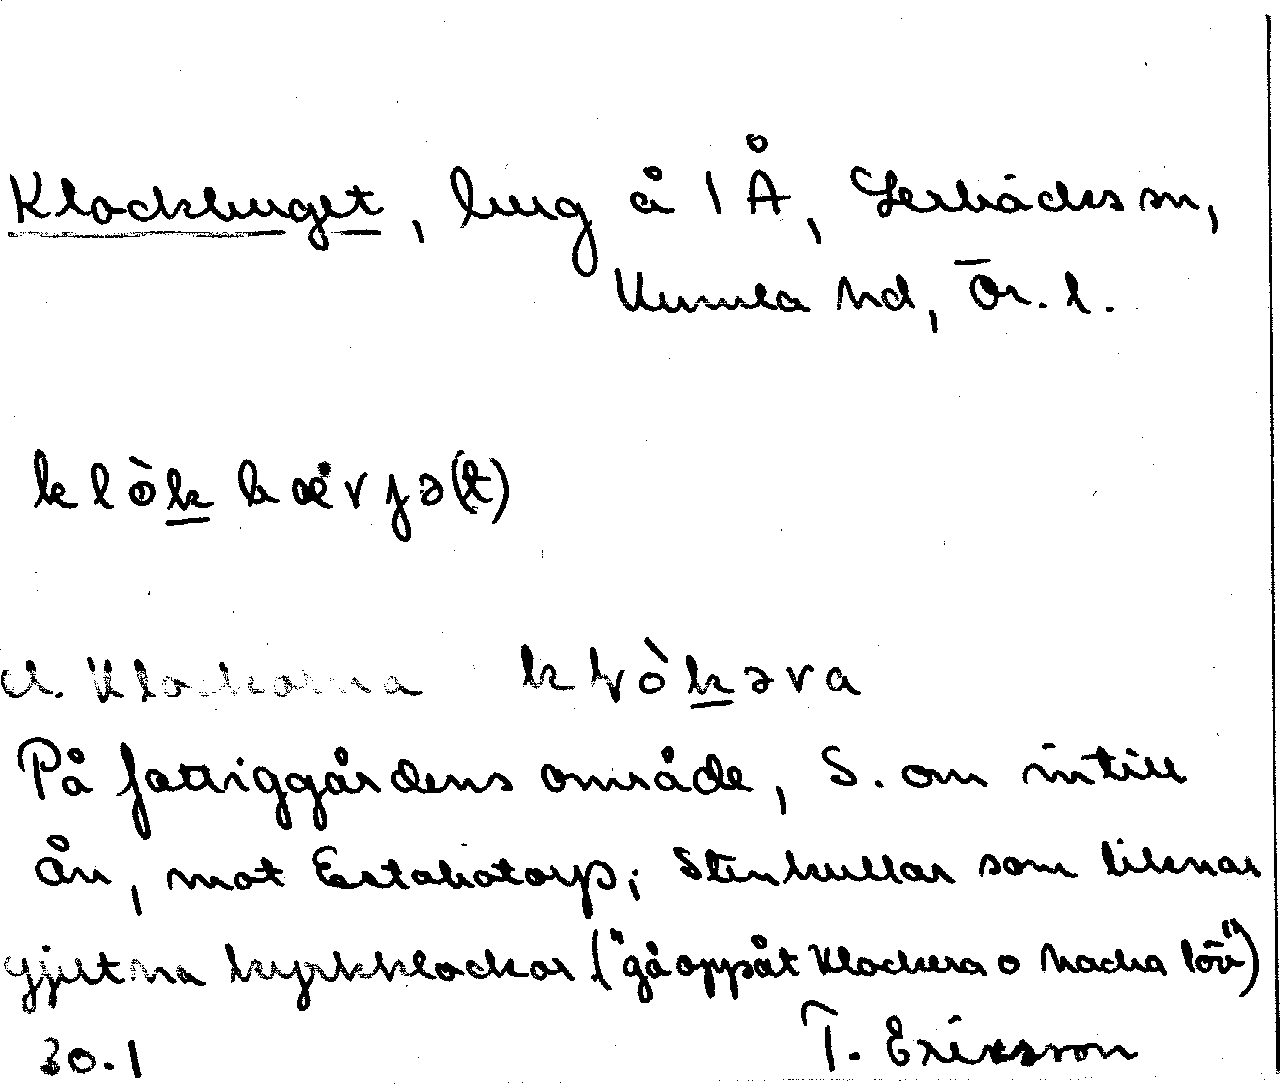 Klockberget, berg å 1 Å, Lerbäcks sn,
Kumla hd, Ör. l.
klòk bærjə(t)
el. Klockorna klòkəra
På fattiggårdens område, S. om intill
ån, mot Estabotorp; Stenkullar som liknar
gjutna kyrkklockor ("gå oppåt Klockera o hacka löv")
30.1 T. Ericsson